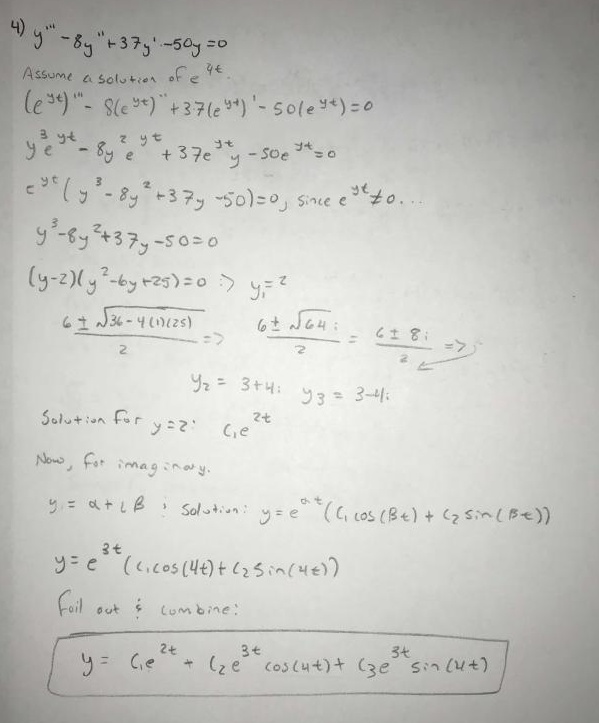 4) y''' - 8y'' + 37y' - 50y = 0
Assume a solution of e^yt.
(e^yt)''' - 8(e^yt)'' + 37(e^yt)' - 50(e^yt) = 0
y^3 e^yt - 8y^2 e^yt + 37e^yt y - 50e^yt = 0
e^yt (y^3 - 8y^2 + 37y - 50) = 0, since e^yt ≠ 0...
y^3 - 8y^2 + 37y - 50 = 0
(y-2)(y^2 - 6y + 25) = 0 => y₁ = 2
(6 ± √(36 - 4(1)(25)))/2 => (6 ± √64 i)/2 = (6 ± 8i)/2 =>
y₂ = 3+4i y₃ = 3-4i
Solution for y=2: c₁e^2t
Now, for imaginary.
y = α + iβ ; Solution: y = e^αt (c₁ cos(βt) + c₂ sin(βt))
y = e^3t (c₁ cos(4t) + c₂ sin(4t))
Foil out & combine:
y = c₁e^2t + c₂e^3t cos(4t) + c₃e^3t sin(4t)